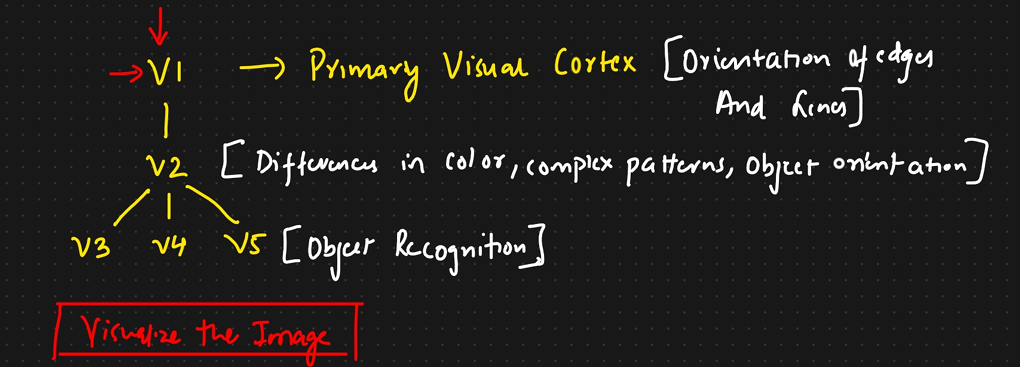 V1 → Primary Visual Cortex [Orientation of edges
And Lines]
V2 [Differences in color, complex patterns, Object orientation]
V3 V4 V5 [Object Recognition]
Visualize the Image